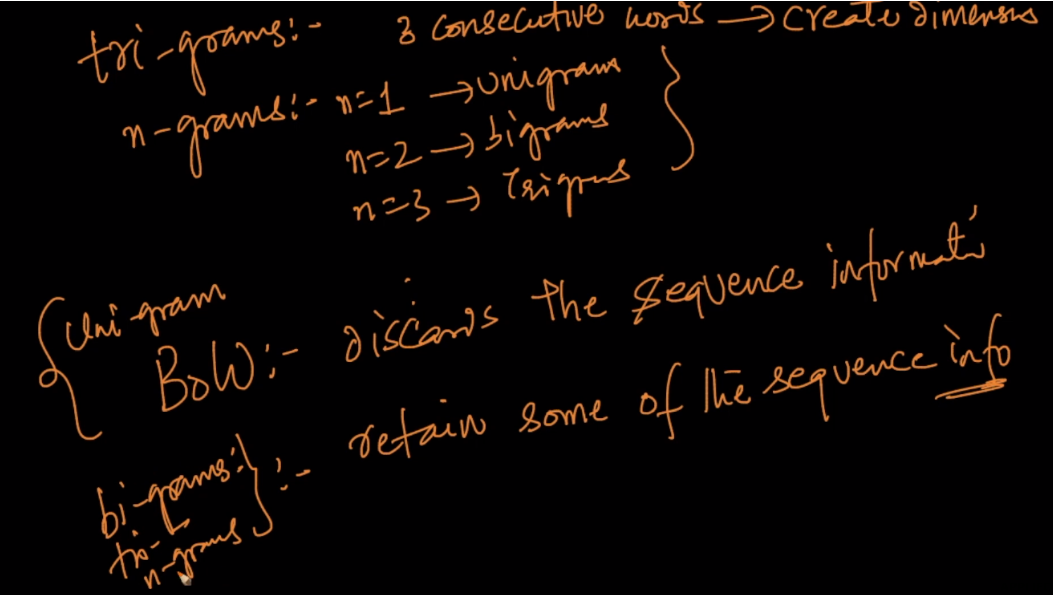 tri-grams:- 3 consecutive words → create dimensns
n-grams:- n=1 → unigram
n=2 → bigrams
n=3 → Trigrms
Uni-gram
BoW:- discards the sequence informati
bi-grams:- retain some of the sequence info
tri-
n-grams